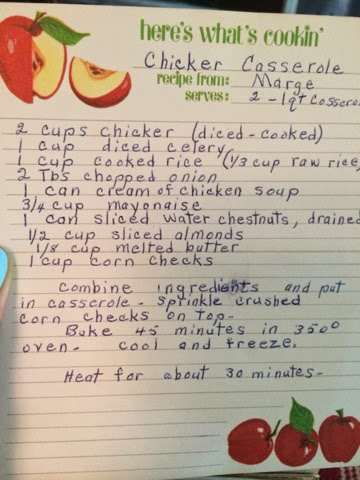 here's what's cookin'
Chicken Casserole
recipe from: Marge
serves: 2-1qt Cossero
2 cups chicken (diced-cooked)
1 cup diced celery
1 cup cooked rice (1/3 cup raw rice)
2 Tbs chopped onion
1 can cream of chicken soup
3/4 cup mayonaise
1 can sliced water chestnuts, drained
1/2 cup sliced almonds
1/8 cup melted butter
1 cup corn checks
Combine ingredients and put
in casserole - sprinkle crushed
corn checks on top -
Bake 45 minutes in 350°
oven - cool and freeze.
Heat for about 30 minutes -